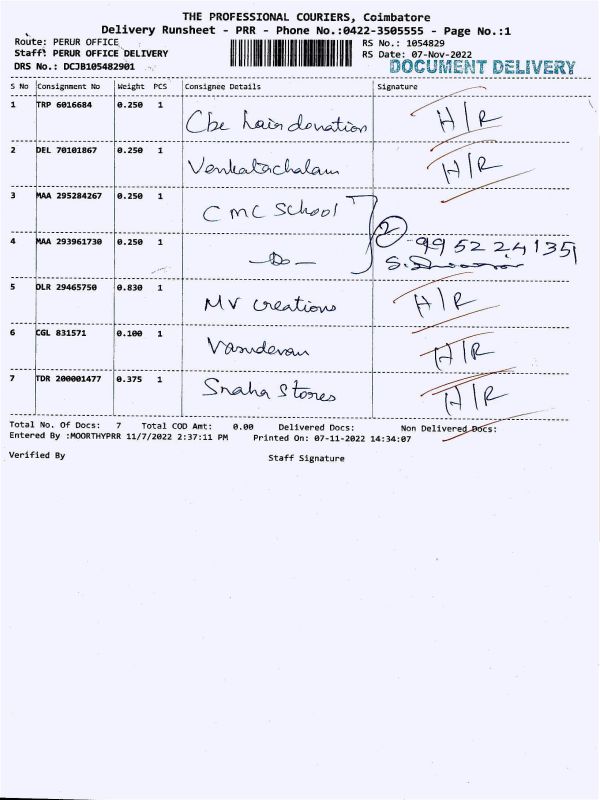 THE PROFESSIONAL COURIERS, Coimbatore
Delivery Runsheet - PRR - Phone No.:0422-3505555 - Page No.:1
Route: PERUR OFFICE
RS No.: 1054829
Staff: PERUR OFFICE DELIVERY
RS Date: 07-Nov-2022
DRS No.: DCJB105482901
DOCUMENT DELIVERY
S No Consignment No Weight PCS Consignee Details Signature
1 TRP 6016684 0.250 1 Cbe hair donation H/R
2 DEL 70101867 0.250 1 Venkatachalam H/R
3 MAA 295284267 0.250 1 CMC School
4 MAA 293961730 0.250 1 -Do- 2 9952224135
5 DLR 29465750 0.830 1 MV creations H/R
6 CGL 831571 0.100 1 Vasudevan H/R
7 TDR 200001477 0.375 1 Sneha Stores H/R
Total No. Of Docs: 7 Total COD Amt: 0.00 Delivered Docs: Non Delivered Docs:
Entered By :MOORTHYPRR 11/7/2022 2:37:11 PM Printed On: 07-11-2022 14:34:07
Verified By Staff Signature